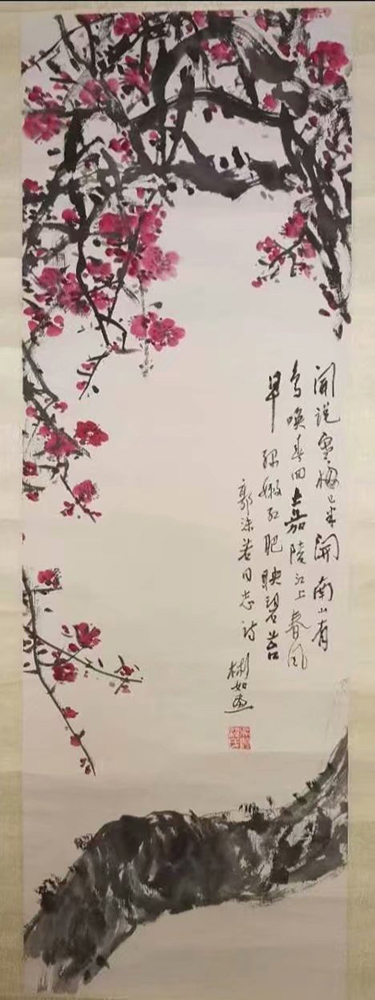 闻说寒梅已半开南山有
鸟唤春回嘉陵江上春风
早绿嫩红肥映碧苔
郭沫若同志诗
彬如画